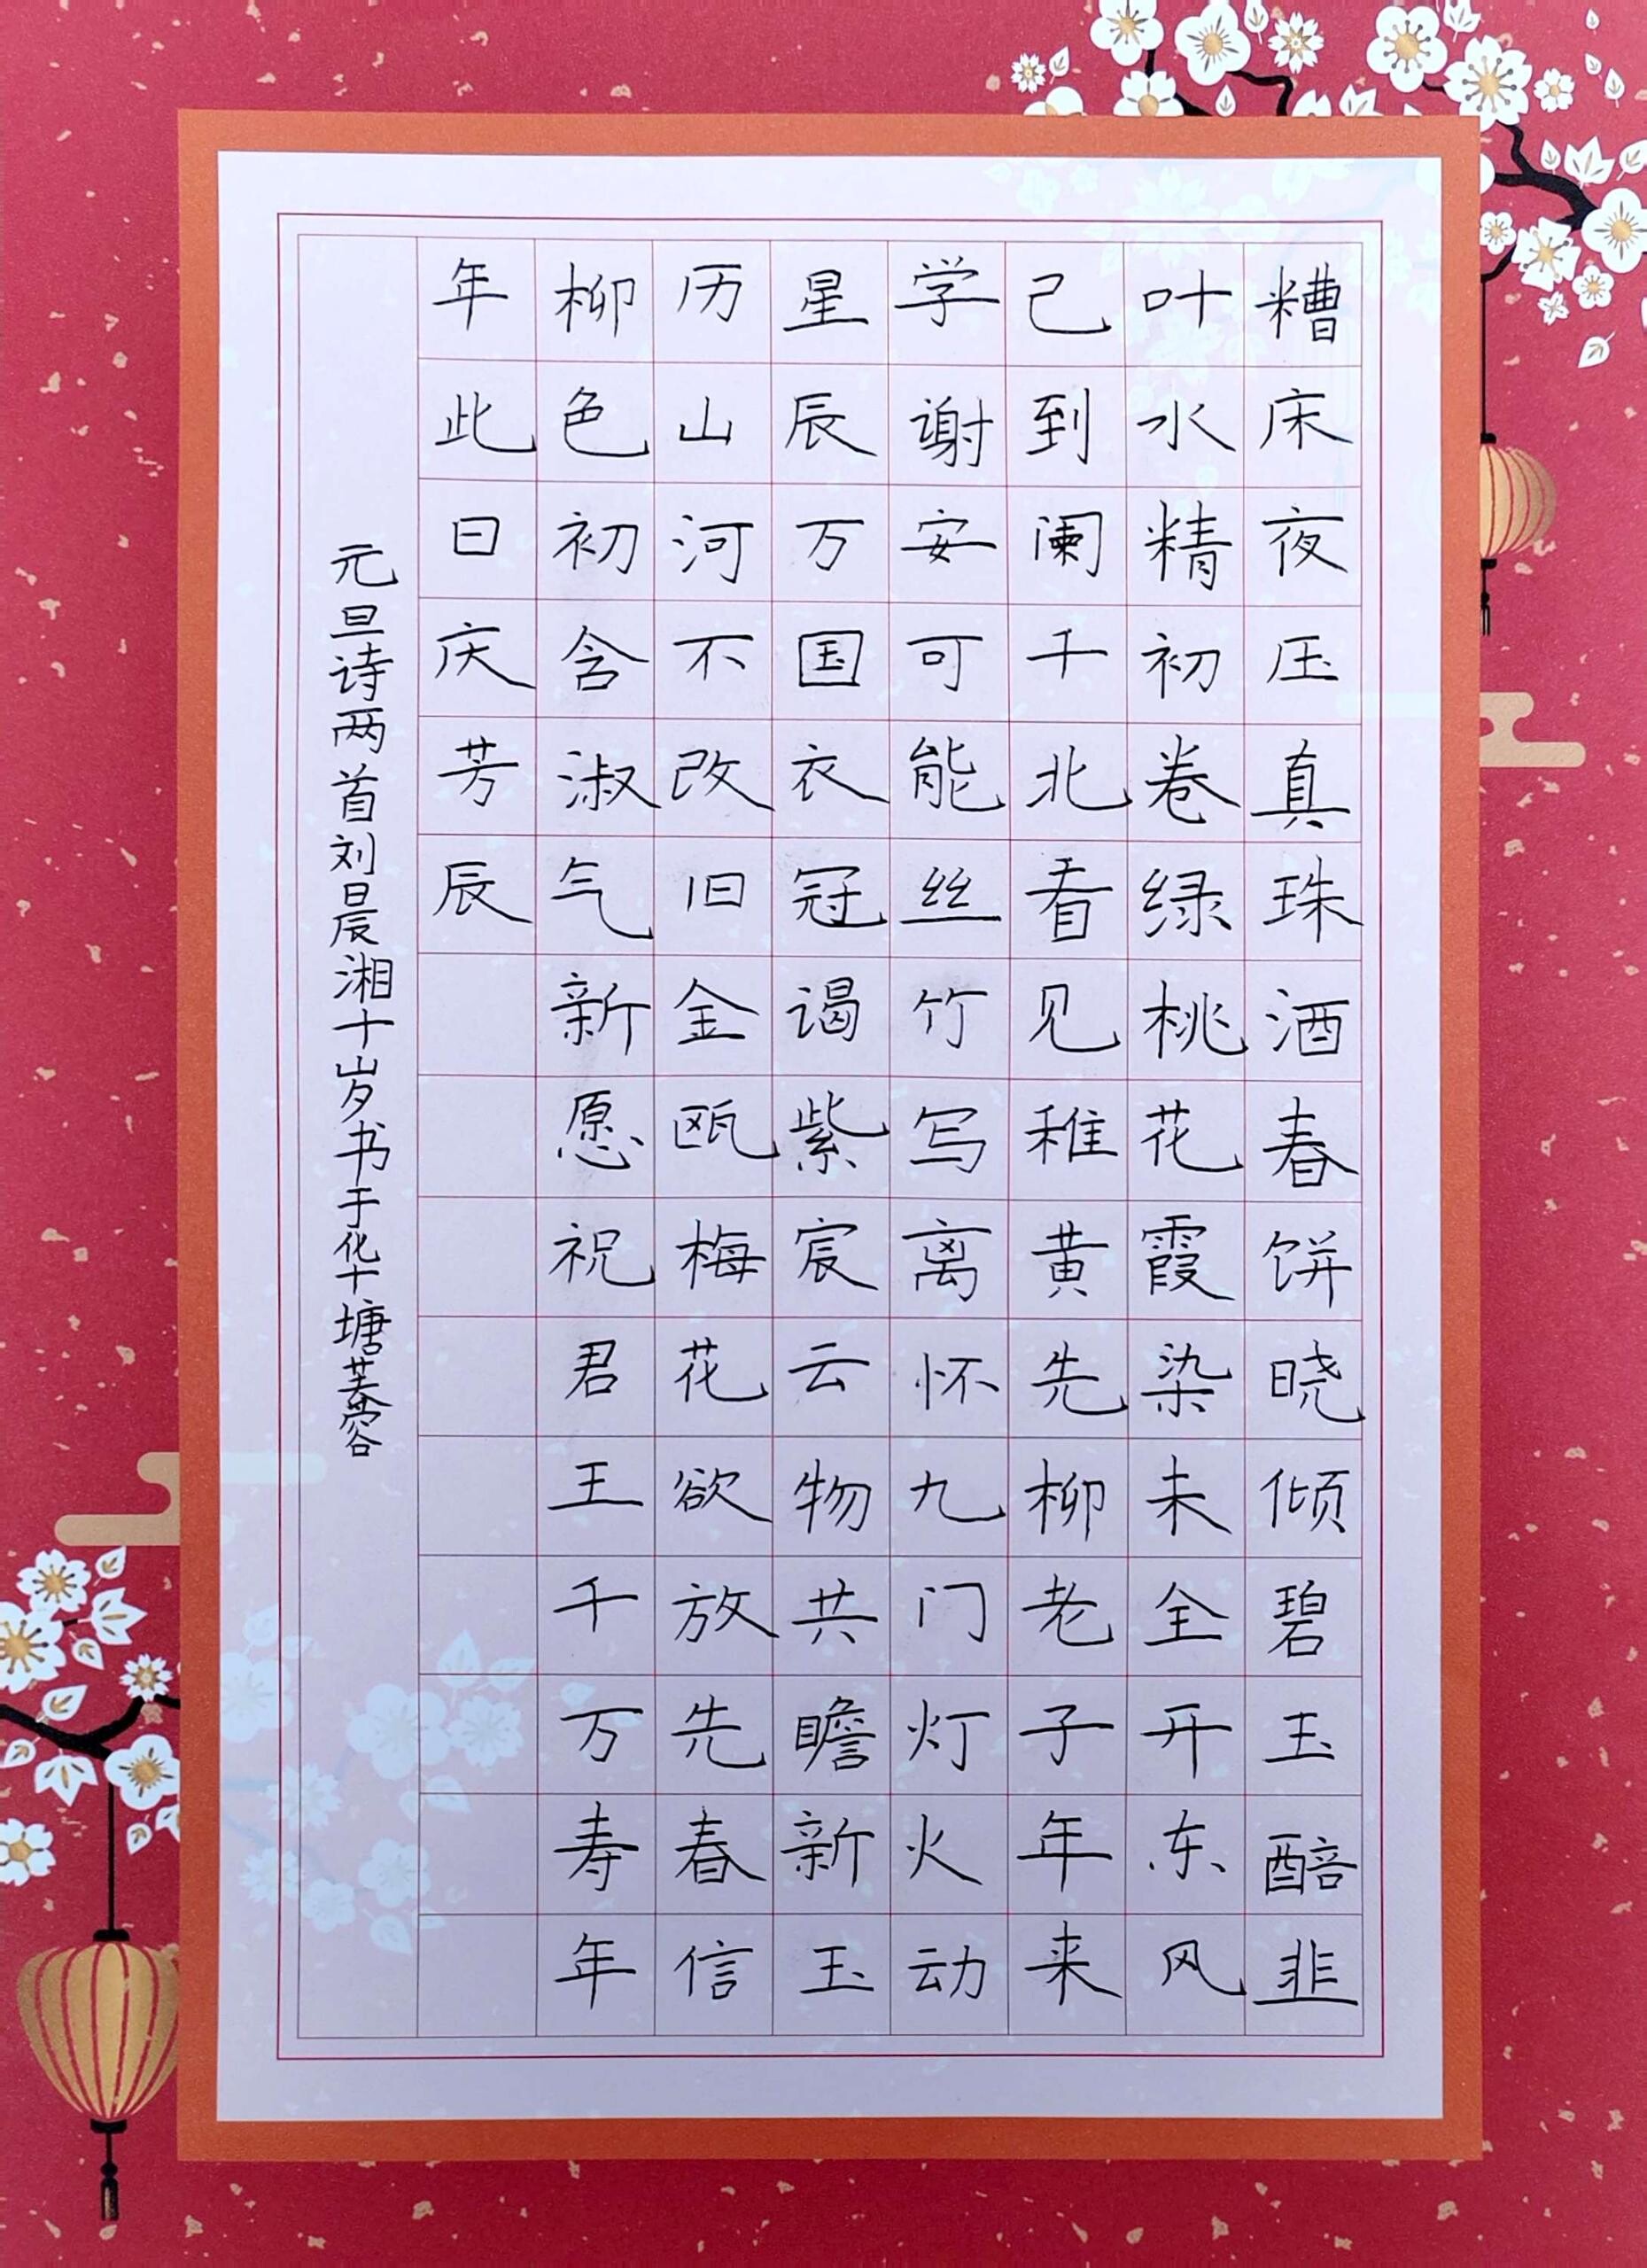 糟床夜压真珠酒春饼晓倾碧玉醅韭
叶水精初卷绿桃花霞染未全开东风
己到阑千北看见稚黄先柳老子年来
学谢安可能丝竹写离怀九门灯火动
星辰万国衣冠谒紫宸云物共瞻新玉
历山河不改旧金瓯梅花欲放先春信
柳色初含淑气新愿祝君王千万寿年
年此日庆芳辰
元旦诗两首刘晨湘十岁书于化十塘芙蓉